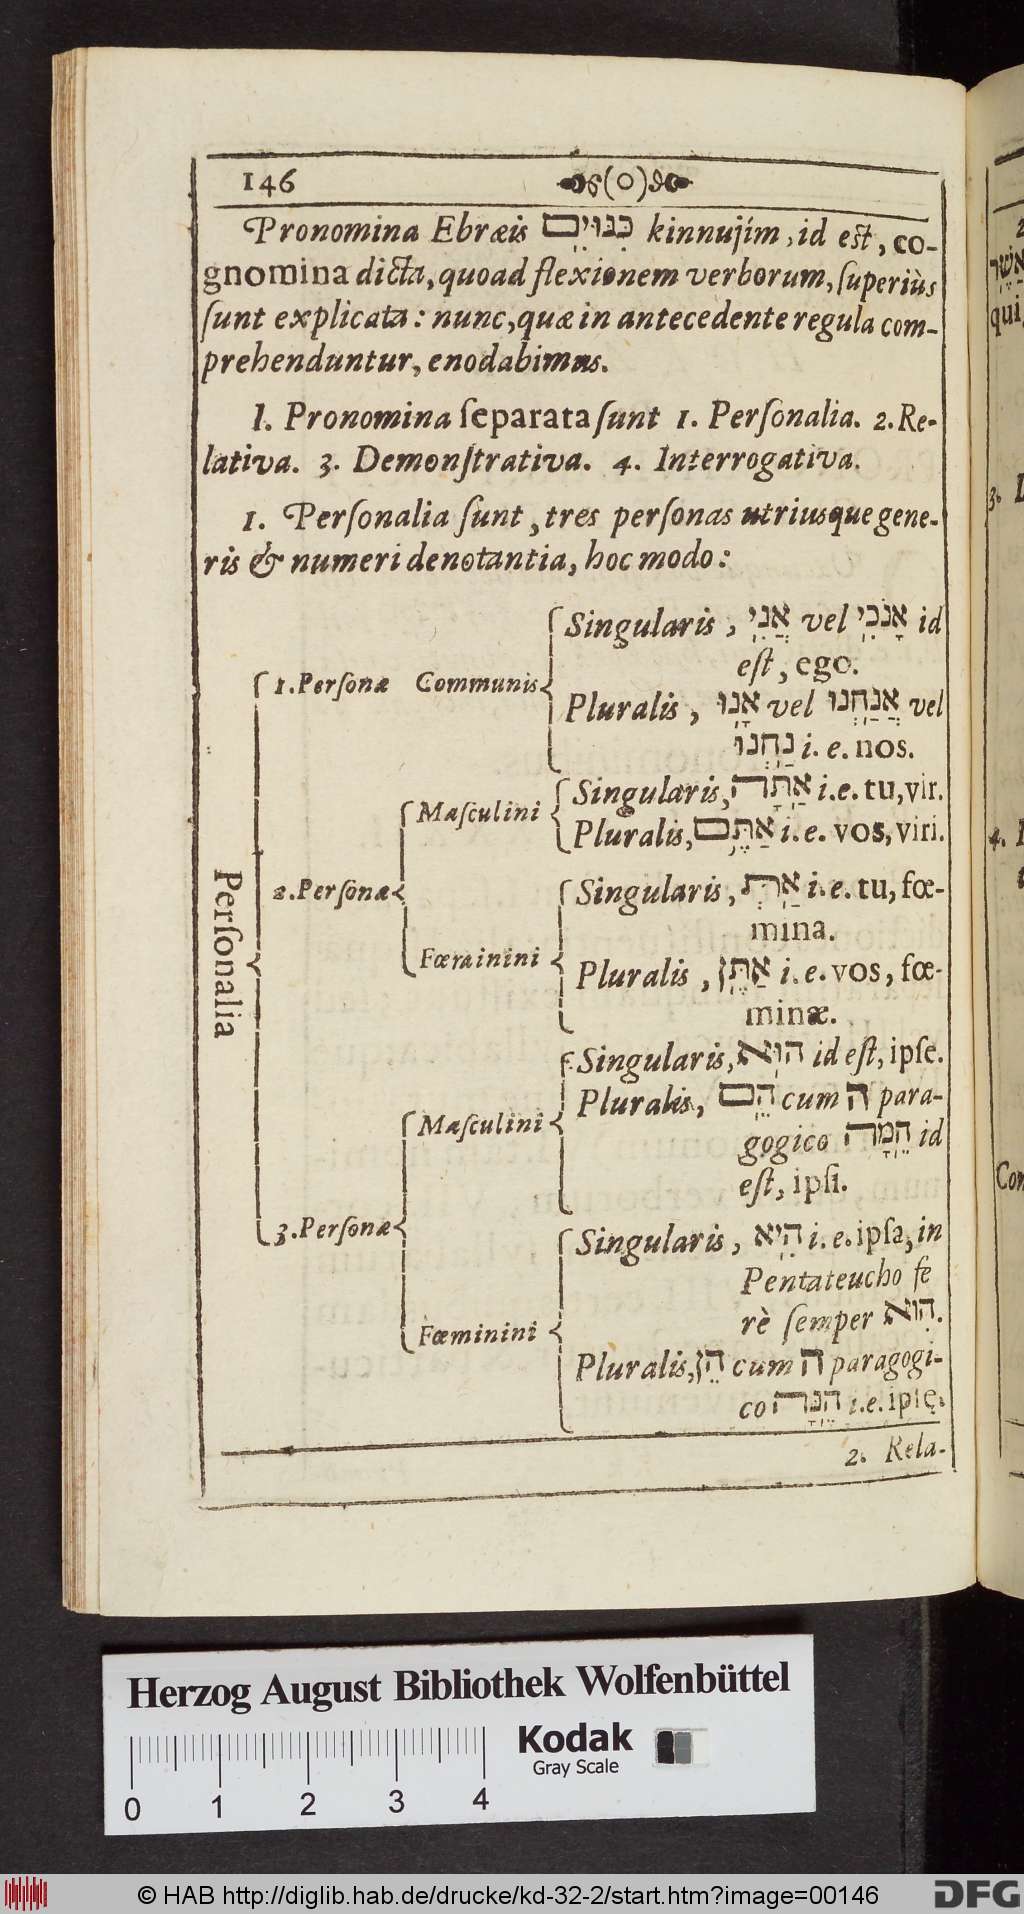 146 (O)
Pronomina Ebræis כִּנּוּיִים kinnujím, id est, co-
gnomina dicta, quoad flexionem verborum, ſuperiùs
ſunt explicata: nunc, quæ in antecedente regula com-
prehenduntur, enodabimus.
I. Pronomina ſeparata ſunt 1. Perſonalia. 2. Re-
lativa. 3. Demonſtrativa. 4. Interrogativa.
1. Perſonalia ſunt, tres perſonas utriusque gene-
ris & numeri denotantia, hoc modo:
Perſonalia
1. Perſonæ Communis
Singularis, אֲנִי vel אָנֹכִי id
eſt, ego.
Pluralis, אָנוּ vel אֲנַחְנוּ vel
נַחְנוּ i. e. nos.
2. Perſonæ
Maſculini
Singularis, אַתָּה i. e. tu, vir.
Pluralis, אַתֶּם i. e. vos, viri.
Fœrainini
Singularis, אַתְּ i. e. tu, fœ-
mina.
Pluralis, אַתֶּן i. e. vos, fœ-
minæ.
3. Perſonæ
Maſculini
Singularis, הוּא id eſt, ipſe.
Pluralis, הֵם cum ה para-
gogico הֵמָּה id
eſt, ipſi.
Fœminini
Singularis, הִיא i. e. ipſa, in
Pentateucho fe
rè ſemper הִוא.
Pluralis, הֵן cum ה paragogi-
co הֵנָּה i. e. ipſę.
2. Rela-
אֲשֶׁר
qui,
3.
4.
Con
Herzog August Bibliothek Wolfenbüttel
Kodak
Gray Scale
0 1 2 3 4
© HAB http://diglib.hab.de/drucke/kd-32-2/start.htm?image=00146
DFG